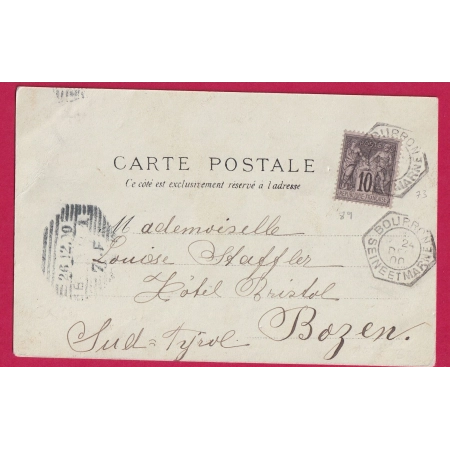 CARTE POSTALE
Ce côté est exclusivement réservé à l'adresse
10
BOURRON
MARNE
Mademoiselle
Louise Staffler
Hôtel Bristol
Bozen.
Sud-Tyrol
BOURRON
24
SEINE ET MARNE
26.12.00
7.F
73